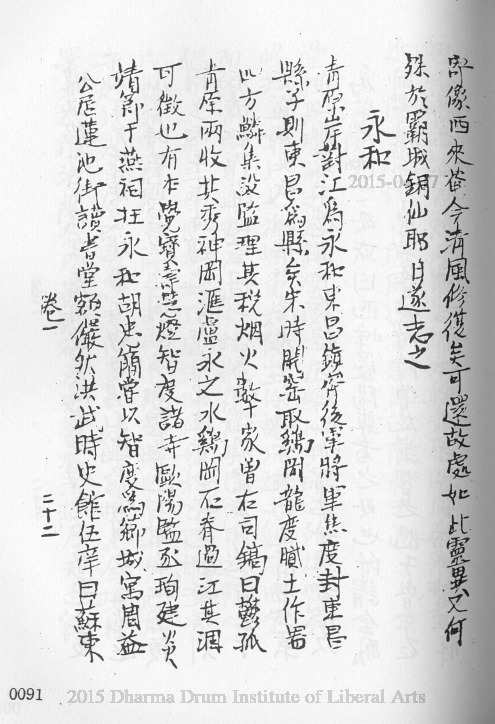 郭像西來者今清風修復矣可還故處如此靈異又何
殊於霸城銅仙耶因遂志之
永和
青原山岸對江為永和東昌鎮宋後軍將軍焦度封東昌
縣子則東昌為縣矣宋時開窑取鷄岡龍度膩土作器
四方鱗集設監理其税烟火數千家曾右司鎬曰藝孤
青原兩收其秀神岡滙盧永之水鷄岡石脊過江其凋
可徵也有本覺寶壽慧燈智度諸寺歐陽監丞珣建炎
靖節丁燕祠在永和胡忠簡嘗以智度為鄉城寓周益
公居蓮池御讀書堂額儼然洪武時史館伍宰曰蘇東
卷一
二十二
2015-04-07
0091
2015 Dharma Drum Institute of Liberal Arts